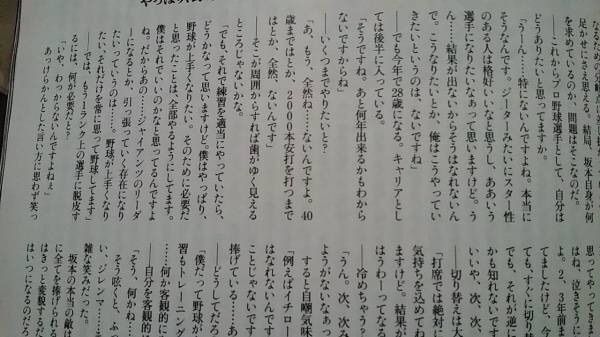 足かせにさえ思える。結局、坂本自身が何
を求めているのか、問題はそこなのだ。
――これからプロ野球選手として、自分は
どうありたいと思ってますか。
「うーん……特にないんですよね。本当に
そうなんです。ジーターみたいにスター性
のある人は格好いいなと思うし、ああいう
選手になりたいなぁって思いますけど。う
ん……結果が出ないからそうはなれないん
で。こうなりたいとか、俺はこうやってい
きたいというのは、ないですね」
――でも今年で28歳になる。キャリアとし
ては後半に入っている。
「そうですね。あと何年出来るかもわから
ないですからね」
――いくつまでやりたいと?
「あ、もう、全然ね……ないんですよ。40
歳まではとか、2000本安打を打つまで
はとか、全然、ないんです」
――そこが周囲からすれば歯がゆく見える
ところじゃないかな。
「でも、それで練習を適当にやっていたら、
どうかなって思いますけど。僕はやっぱり、
野球が上手くなりたい。そのために必要だ
と思ったことは、全部やるようにしてます。
僕はそれでいいのかなと思ってるんですよ
ね。だからあの……ジャイアンツのリーダ
ーになるとか、引っ張っていく存在になり
たいっていうのは……。野球が上手くなり
たい、それだけを常に思って野球してます」
――では、もう1ランク上の選手に脱皮す
るには、何が必要だと?
「いや、わっからないんですよねぇ」
あっけらかんとした言い方に思わず笑っ
思ってやってきま
はね、泣きそうに
よ。2、3年前ま
てましたけど、今
ても、すぐに切り替
でも、それが逆に
かも知れないです
いいや、次、次み
――切り替えは大
「打席では絶対に
気持ちを込めてね
ますけど。結果が
はうわーってなる
――冷めちゃう?
「うん。次、次み
ようがないなぁっ
すると自嘲気味
「例えばイチロー
はなれないんです
ことじゃないです
捧げている……あ
――どうしてだろ
「僕だって野球が
習もトレーニング
……何か客観的に
――自分を客観的に
「そう、何かね…
そう呟くと、ふっ
い、ジレンマ……そ
雑な笑みだった。
坂本の本当の敵は
に全てを捧げられる
はきっと変貌するだ
はいつになるのだろ